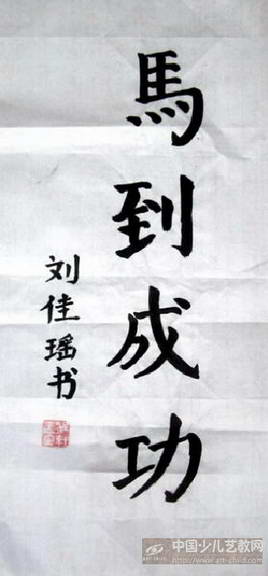 馬到成功
刘佳瑶书
中国少儿艺教网
http://www.art-child.com